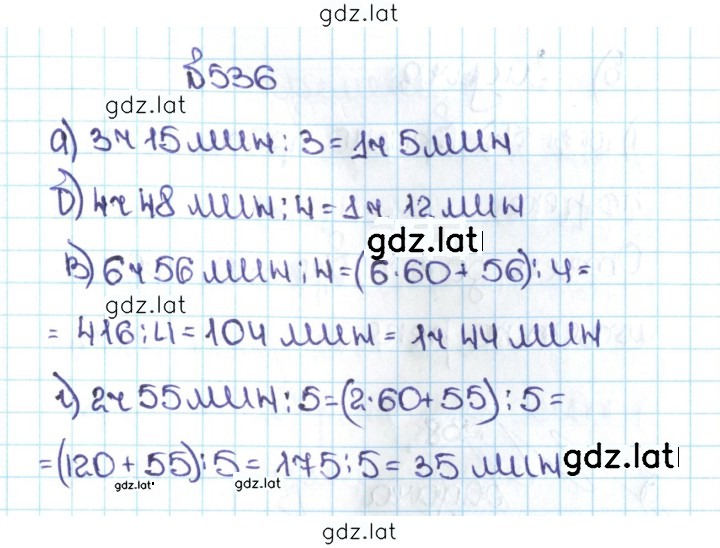 gdz.lat
№536
gdz.lat
а) 3ч 15 мин : 3 = 1ч 5 мин
б) 4ч 48 мин : 4 = 1ч 12 мин
gdz.lat
в) 6ч 56 мин : 4 = (6·60 + 56) : 4 =
gdz.lat
= 416 : 4 = 104 мин = 1ч 44 мин
г) 2ч 55 мин : 5 = (2·60 + 55) : 5 =
= (120 + 55) : 5 = 175 : 5 = 35 мин gdz.lat
gdz.lat gdz.lat
gdz.lat